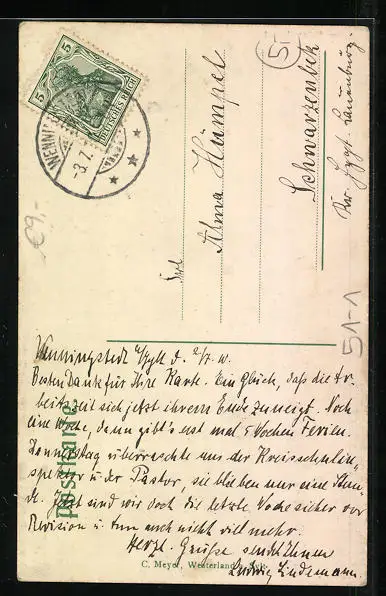 5
5
DEUTSCHES REICH
WENNI
3.7.
5.-
€9.-
51-1
Frl
Alma Hümpel
Schwarzenbek
Kr. Hzgt. Lauenburg.
Postkarte
Wenningstedt a/Sylt d. 2/7.
Besten Dank für Ihre Karte. Ein Glück, daß die Ar-
beitszeit sich jetzt ihrem Ende zuneigt. Noch
eine Woche, dann gibt's erst mal 5 Wochen Ferien.
Donnerstag überraschte uns der Kreisschulin-
spektor u. der Pastor, sie blieben nur eine Stun-
de. Jetzt sind wir doch die letzte Woche sicher vor
Revision u. tun auch nicht viel mehr.
Herzl. Grüße sendet Ihnen
Ludwig Lindemann.
C. Meyer, Westerland